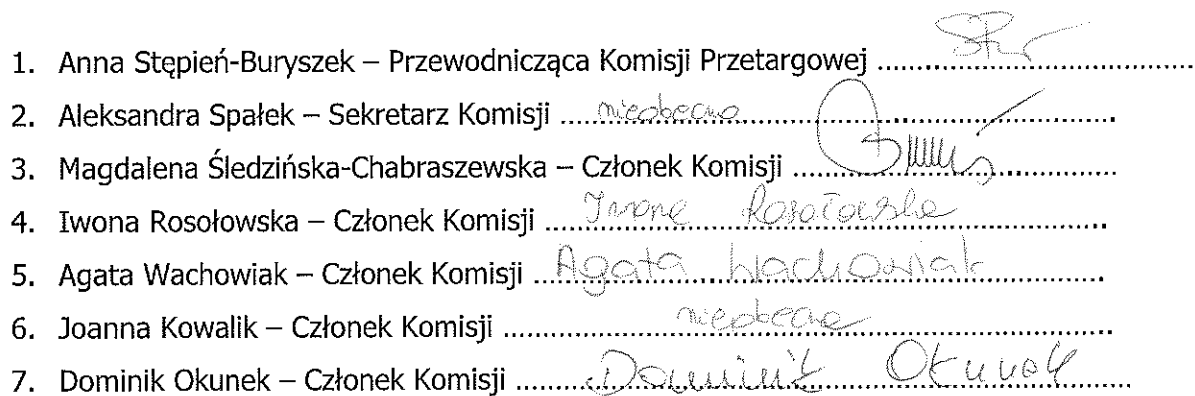 1. Anna Stępień-Buryszek – Przewodnicząca Komisji Przetargowej
2. Aleksandra Spałek – Sekretarz Komisji nieobecna
3. Magdalena Śledzińska-Chabraszewska – Członek Komisji
4. Iwona Rosołowska – Członek Komisji Iwona Rosołowska
5. Agata Wachowiak – Członek Komisji Agata Wachowiak
6. Joanna Kowalik – Członek Komisji nieobecna
7. Dominik Okunek – Członek Komisji Dominik Okunek